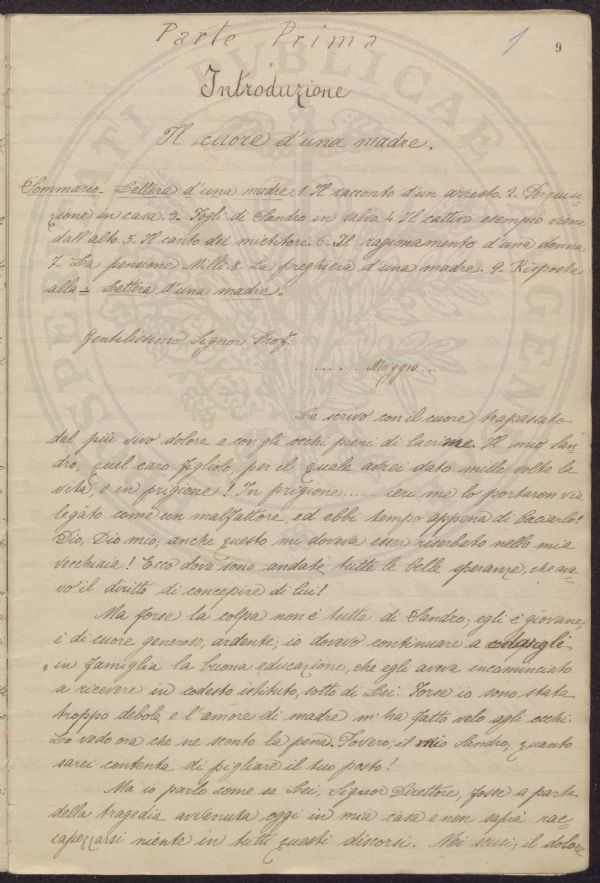 Parte Prima
1
9
Introduzione
Il cuore d'una madre.
Sommario - Lettera d'una madre. 1. Il racconto d'un arresto. 2- Perquisi-
zione in casa. 3- Fogli di Sandro in salvo. 4. Il cattivo esempio viene
dall'alto. 5. Il canto dei mietitori. 6- Il ragionamento d'una donna
7- La pensione Milli. 8. La preghiera d'una madre. 9- Risposta
alla - Lettera d'una madre -
Gentilissimo Signor Prof.
........ Maggio...
Le scrivo con il cuore trapassato
dal più vivo dolore e con gli occhi pieni di lacrime. Il mio San-
dro, quel caro figliolo, per il quale avrei dato mille volte la
vita, è in prigione! In prigione...... ieri me lo portaron via
legato come un malfattore, ed ebbi tempo appena di baciarlo!
Dio, Dio mio, anche questo mi doveva esser riserbato nella mia
vecchiaia! Ecco dove sono andate tutte le belle speranze, che ave-
vo il diritto di concepire di Lui!
Ma forse la colpa non è tutta di Sandro; egli è giovane,
è di cuore generoso, ardente; io dovevo continuare a
in famiglia la buona educazione, che egli aveva incominciato
a ricevere in codesto istituto, sotto di Lei. Forse io sono stata
troppo debole, e l'amore di madre m'ha fatto velo agli occhi.
Lo vedo ora che ne sconto la pena. Povero, il mio Sandro, quanto
sarei contenta di pigliare il tuo posto!
Ma io parlo come se Lei, Signor Direttore, fosse a parte
della tragedia avvenuta oggi in mia casa e non saprà rac-
capezzarsi niente in tutti questi discorsi. Mi scusi; il dolore
SPE PUBLICAE GEN